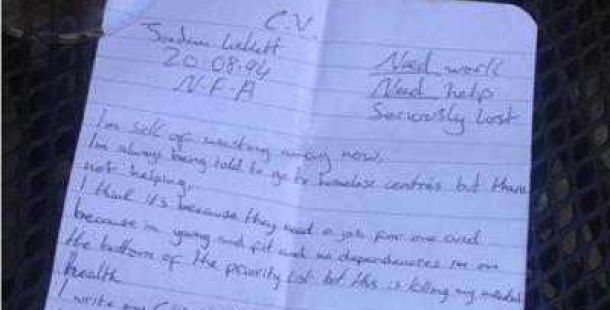 C.V.
20.08.94
N-F-A
Need work
Need help
Seriously Lost
Im sick of wasting away now,
Im always being told to go to homeless centres but there
not helping,
I think its because they need a job for one and
because im young and fit and no dependencies im on
the bottom of the priority list but this is killing my mental
health
I write my